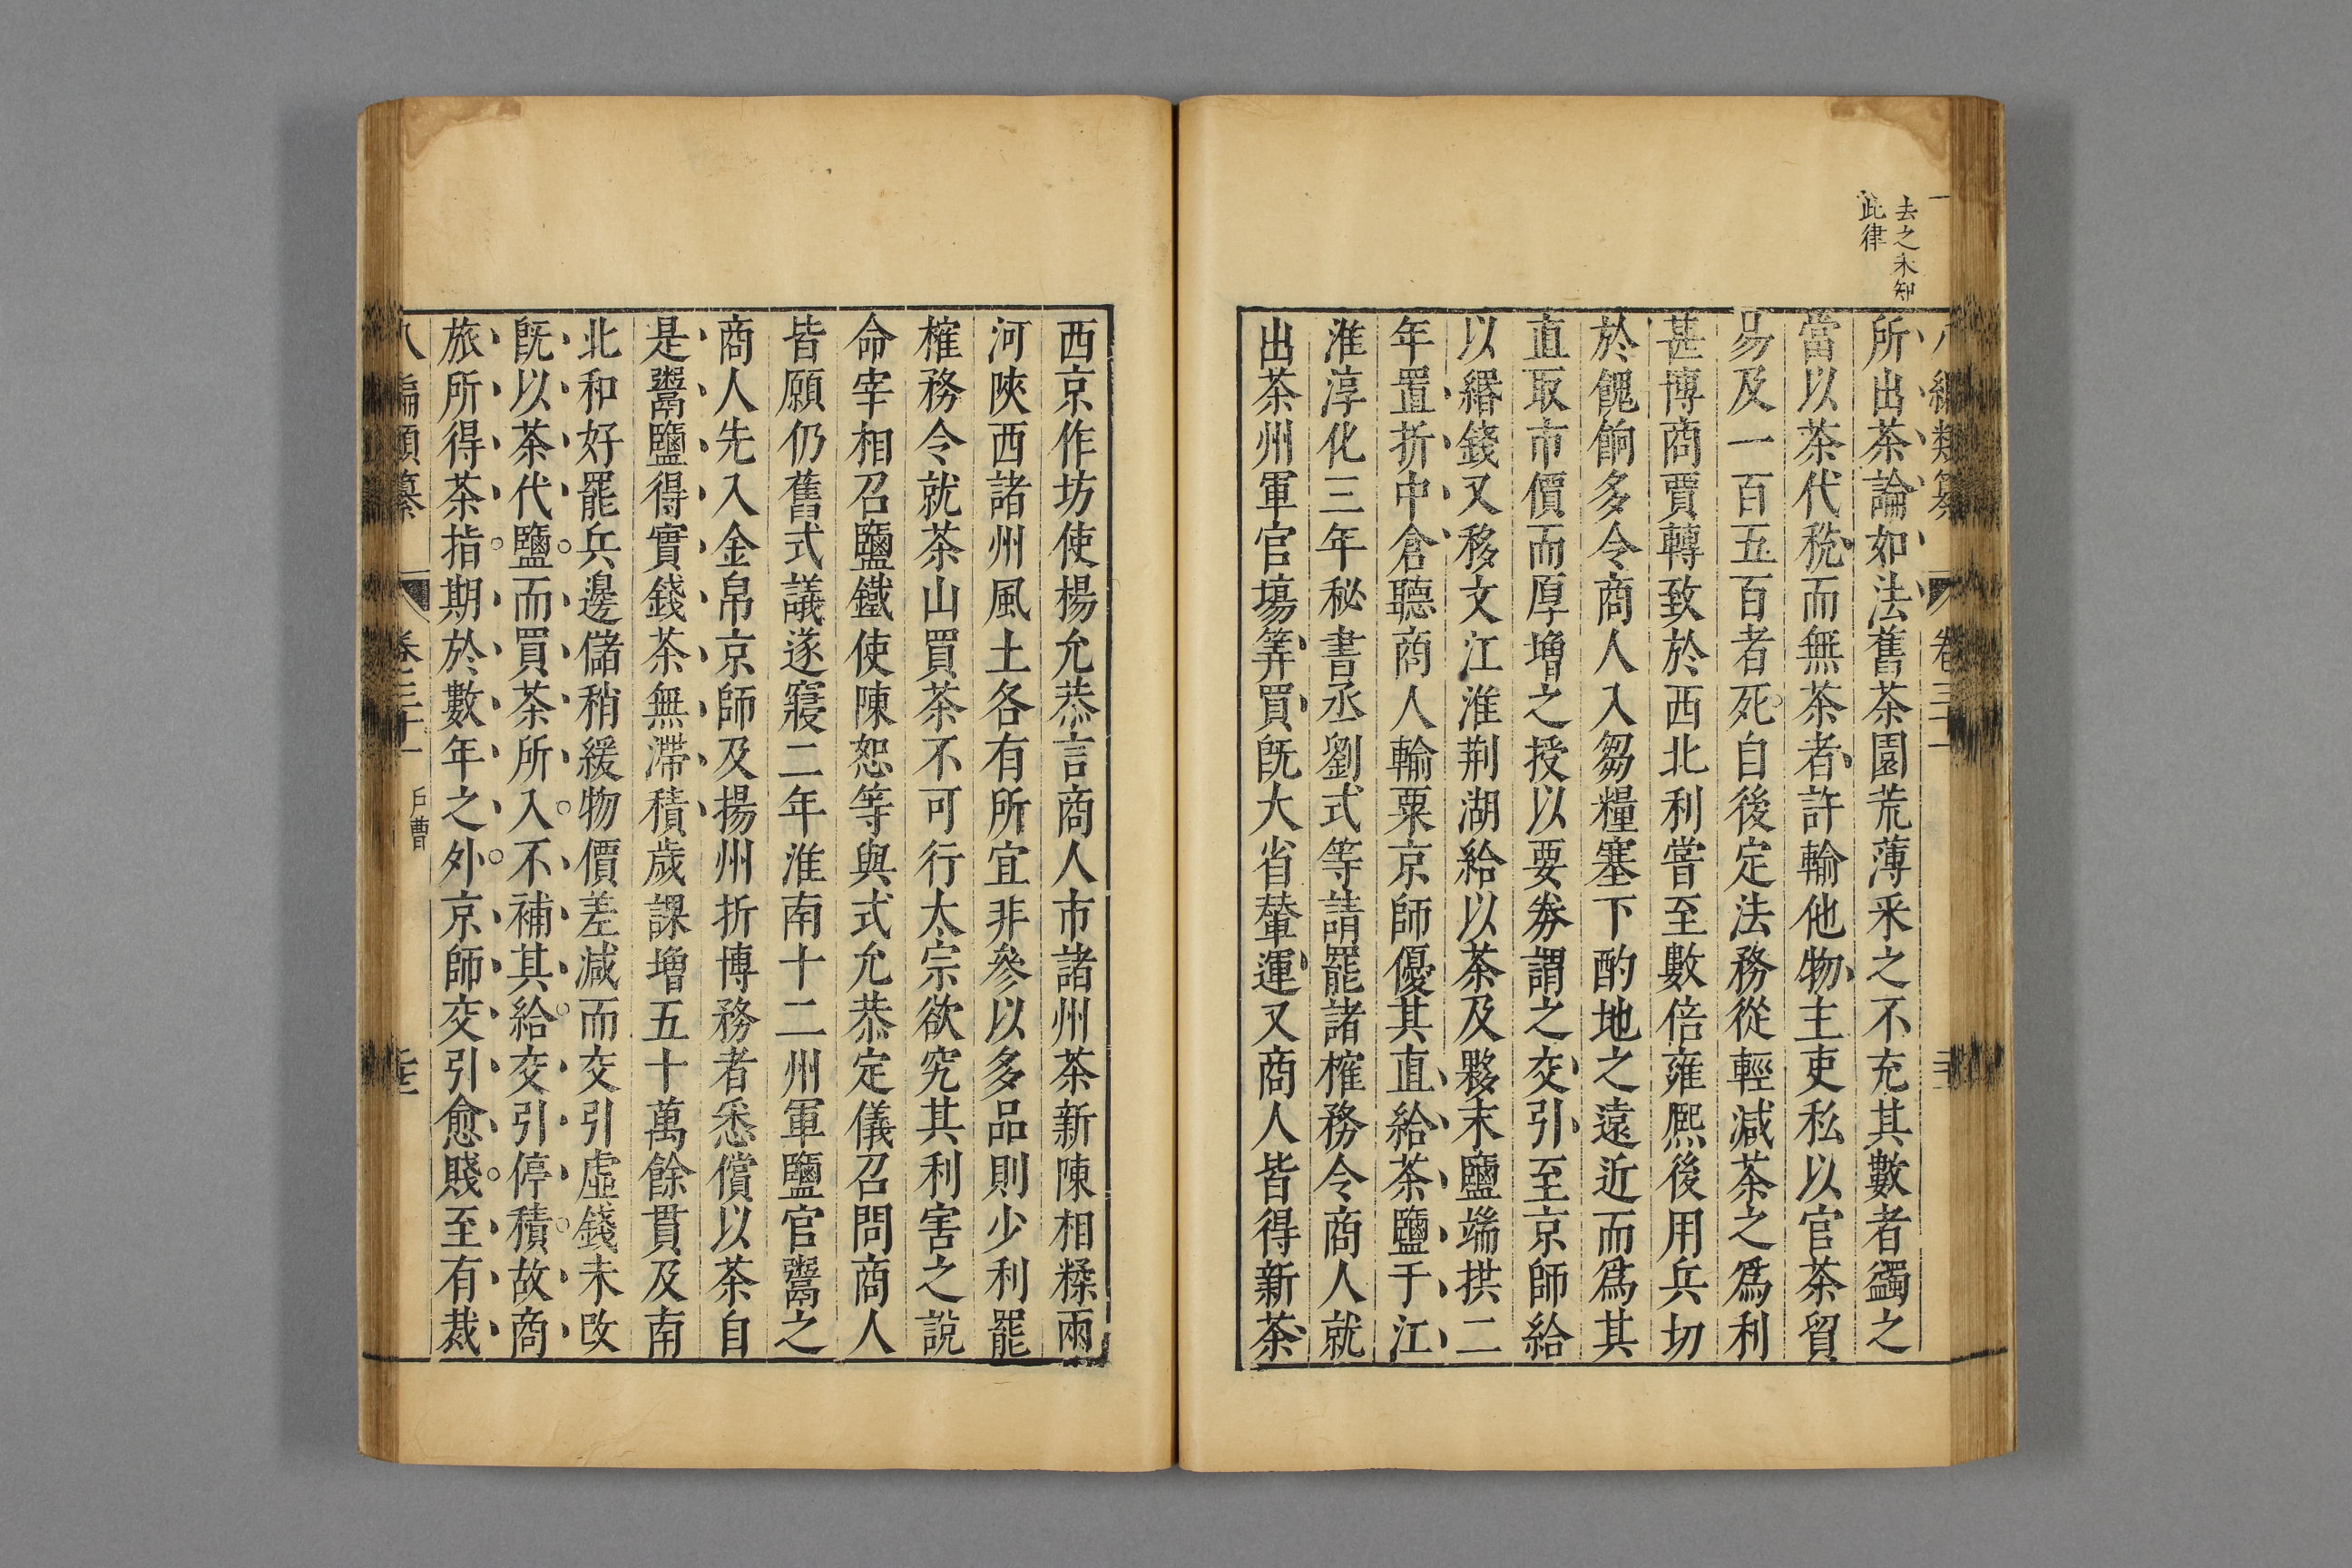 去之未知
此律
八編類纂 卷三十一
所出茶論如法舊茶園荒薄采之不充其數者蠲之
當以茶代稅而無茶者許輸他物主吏私以官茶貿
易及一百五百者死自後定法務從輕減茶之爲利
甚博商賈轉致於西北利嘗至數倍雍熙後用兵切
於餽餉多令商人入芻糧塞下酌地之遠近而爲其
直取市價而厚增之授以要券謂之交引至京師給
以緡錢又移文江淮荆湖給以茶及夥末鹽端拱二
年置折中倉聽商人輸粟京師優其直給茶鹽于江
淮淳化三年秘書丞劉式等請罷諸榷務令商人就
出茶州軍官塲筭買旣大省輦運又商人皆得新茶
西京作坊使楊允恭言商人市諸州茶新陳相糅兩
河陝西諸州風土各有所宜非參以多品則少利罷
榷務令就茶山買茶不可行太宗欲究其利害之說
命宰相召鹽鐵使陳恕等與式允恭定儀召問商人
皆願仍舊式議遂寢二年淮南十二州軍鹽官鬻之
商人先入金帛京師及揚州折博務者悉償以茶自
是鬻鹽得實錢茶無滯積歲課增五十萬餘貫及南
北和好罷兵邊儲稍緩物價差減而交引虛錢未改
旣以茶代鹽而買茶所入不補其給交引停積故商
旅所得茶指期於數年之外京師交引愈賤至有裁
八編類纂 卷三十一 戶曹